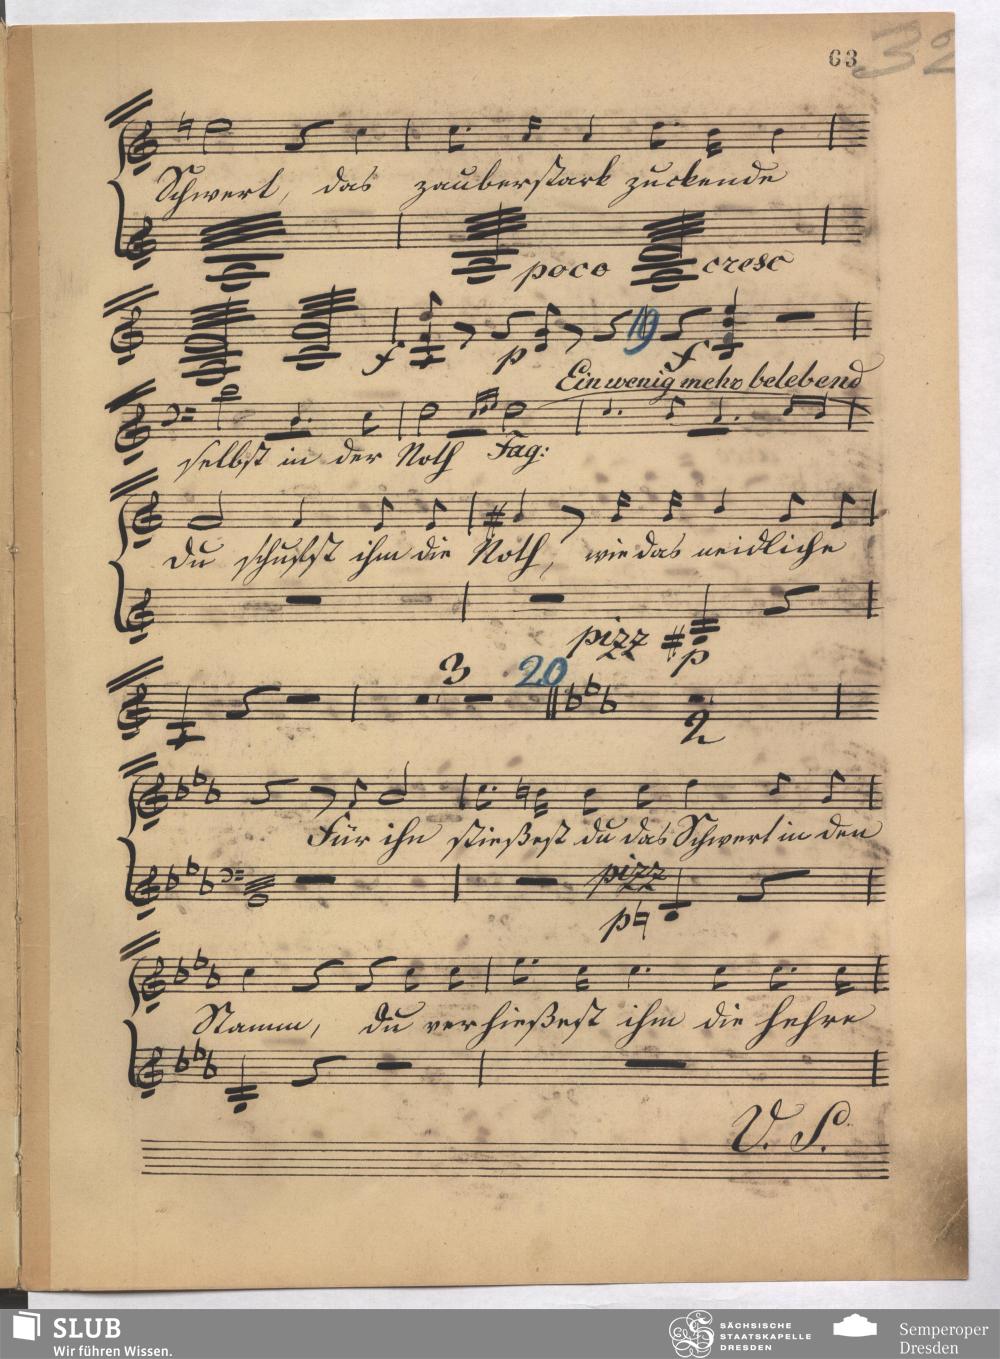 63
32
Schwert, das zauberstark zuckende
poco cresc
f p 19 f
Ein wenig mehr belebend
selbst in der Noth Fag:
Du schufst ihm die Noth, wie das neidliche
pizz
p
3 20
2
Für ihn stießest du das Schwert in den
pizz
p
Stamm, du verhießest ihm die hehre
V. S.
SLUB
Wir führen Wissen.
SÄCHSISCHE
STAATSKAPELLE
DRESDEN
Semperoper
Dresden